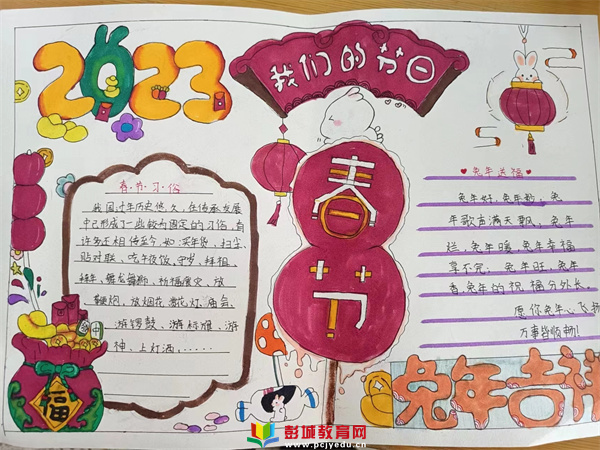 2023
我们的节日
春节
春节习俗
我国过年历史悠久,在传承发展
中已形成了一些较为固定的习俗,有
许多还相传至今,如:买年货、扫尘、
贴对联、吃年夜饭、守岁、拜祖、
拜年、舞龙舞狮、祈福攘灾、放
鞭炮、放烟花、赏花灯、庙会、
游锣鼓、游标旗、游
神、上灯酒,……
福
兔年送福
兔年好,兔年歌,兔
年歌声满天飘,兔年
烂,兔年暖,兔年幸福
享不完,兔年旺,兔年
香,兔年的祝福分外长。
愿你兔年心飞扬
万事皆顺畅!
兔年吉祥
彭城教育网
www.pcjyedu.cn